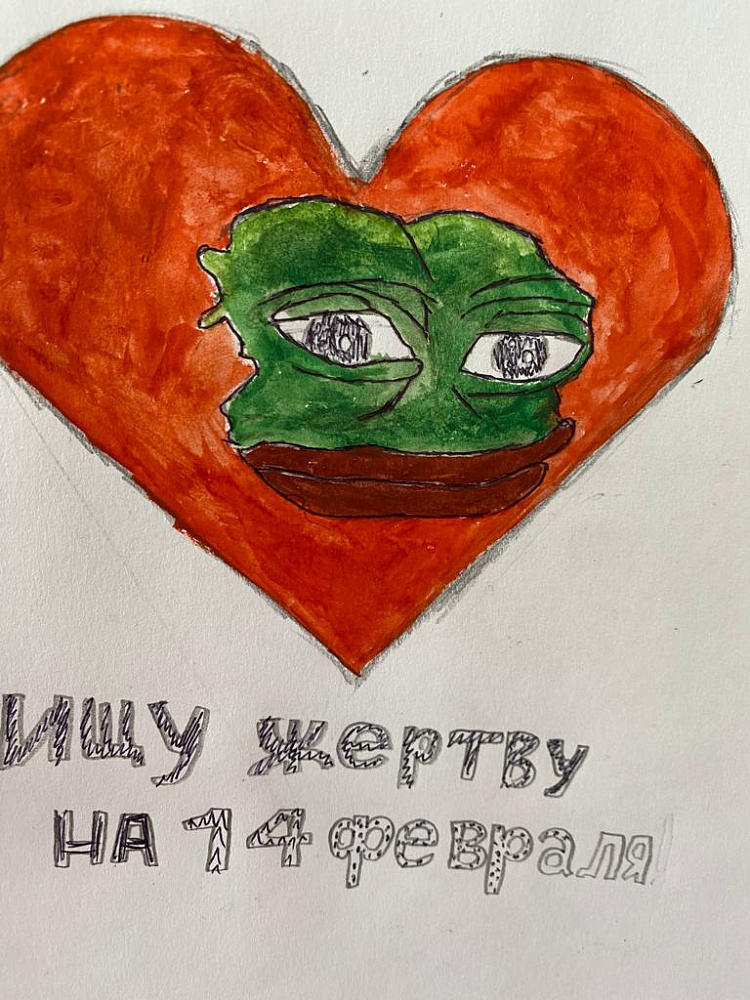 Ищу жертву
на 14 февраля